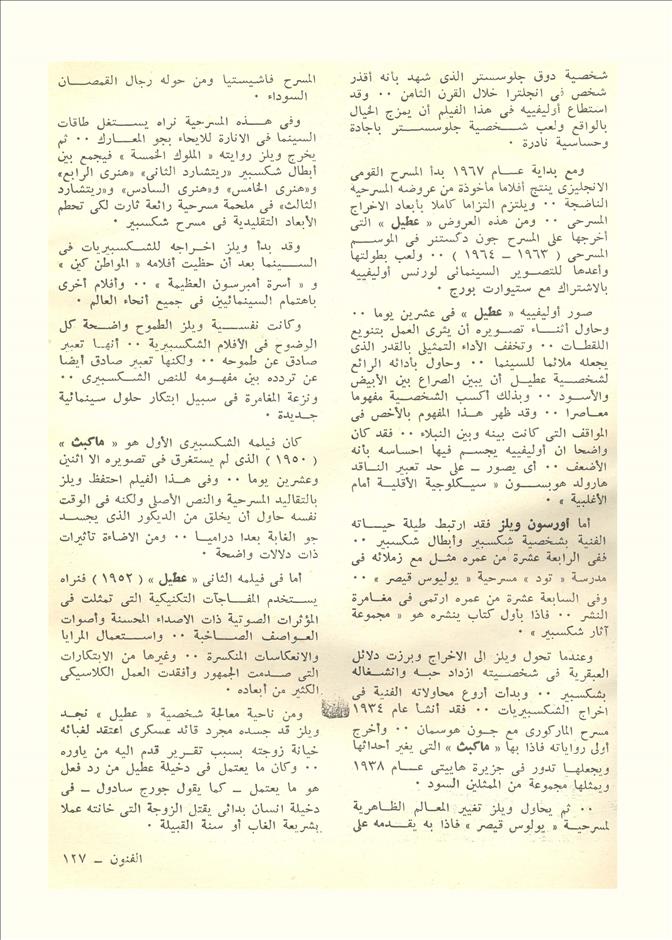 شخصية دوق جلوسستر الذى شهد بأنه أقذر
شخص فى انجلترا خلال القرن الثامن ٠٠ وقد
استطاع أوليفييه فى هذا الفيلم أن يمزج الخيال
بالواقع ولعب شخصية جلوسستر باجادة
وحساسية نادرة ٠
ومع بداية عام ١٩٦٧ بدأ المسرح القومى
الانجليزى ينتج أفلاما مأخوذة من عروضه المسرحية
الناضجة ٠٠ ويلتزم التزاما كاملا بأبعاد الاخراج
المسرحى ٠٠ ومن هذه العروض « عطيل » التى
أخرجها على المسرح جون دكستنر فى الموسم
المسرحى ( ١٩٦٣ ــ ١٩٦٤ ) ٠٠ ولعب بطولتها
وأعدها للتصوير السينمائى لورنس أوليفييه
بالاشتراك مع ستيوارت بورج ٠
صور أوليفييه « عطيل » فى عشرين يوما ٠٠
وحاول أثناء تصويره أن يثرى العمل بتنويع
اللقطات ٠٠ وتخفف الأداء التمثيلى بالقدر الذى
يجعله ملائما للسينما ٠٠ وحاول بأدائه الرائع
لشخصية عطيل أن يبين الصراع بين الأبيض
والأسود ٠٠ وبذلك أكسب الشخصية مفهوما
معاصرا ٠٠ وقد ظهر هذا المفهوم بالأخص فى
المواقف التى كانت بينه وبين النبلاء ٠٠ فقد كان
واضحا ان أوليفييه يجسم فيها احساسه بأنه
الأضعف ٠٠ أى يصور ــ على حد تعبير الناقد
هارولد هوبسون « سيكلوجية الأقلية أمام
الأغلبية » ٠
أما أورسون ويلز فقد ارتبط طيلة حياته
الفنية بشخصية شكسبير وأبطال شكسبير ٠٠
ففى الرابعة عشرة من عمره مثل مع زملائه فى
مدرسة « تود » مسرحية « يوليوس قيصر » ٠٠
وفى السابعة عشرة من عمره ارتمى فى مغامرة
النشر ٠٠ فاذا بأول كتاب ينشره هو « مجموعة
آثار شكسبير » ٠
وعندما تحول ويلز الى الاخراج وبرزت دلائل
العبقرية فى شخصيته ازداد حبه وانشغاله
بشكسبير ٠٠ وبدأت أروع محاولاته الفنية فى
اخراج الشكسبيريات ٠٠ فقد أنشأ عام ١٩٣٤
مسرح الماركورى مع جون هوسمان ٠٠ وأخرج
أولى رواياته فاذا بها « ماكبث » التى يغير أحداثها
ويجعلها تدور فى جزيرة هاييتى عام ١٩٣٨
ويمثلها مجموعة من الممثلين السود ٠
٠٠ ثم يحاول ويلز تغيير المعالم الظاهرية
لمسرحية « يولوس قيصر » فاذا به يقدمه على
المسرح فاشيستيا ومن حوله رجال القمصان
السوداء ٠
وفى هذه المسرحية نراه يستغل طاقات
السينما فى الانارة للايحاء بجو المعارك ٠٠ ثم
يخرج ويلز روايته « الملوك الخمسة » فيجمع بين
أبطال شكسبير «ريتشارد الثانى» «هنرى الرابع»
و«هنرى الخامس» و«هنرى السادس» و«ريتشارد
الثالث» فى ملحمة مسرحية رائعة ثارت لكى تحطم
الأبعاد التقليدية فى مسرح شكسبير ٠
وقد بدأ ويلز اخراجه للشكسبيريات فى
السينما بعد أن حظيت أفلامه « المواطن كين »
و « أسرة أمبرسون العظيمة » ٠٠ وأفلام أخرى
باهتمام السينمائيين فى جميع أنحاء العالم ٠
وكانت نفسية ويلز الطموح واضحة كل
الوضوح فى الأفلام الشكسبيرية ٠٠ أنها تعبير
صادق عن طموحه ٠٠ ولكنها تعبير صادق أيضا
عن تردده بين مفهومه للنص الشكسبيرى ٠٠
ونزعة المغامرة فى سبيل ابتكار حلول سينمائية
جديدة ٠
كان فيلمه الشكسبيرى الأول هو « ماكبث »
( ١٩٥٠ ) الذى لم يستغرق فى تصويره الا اثنين
وعشرين يوما ٠٠ وفى هذا الفيلم احتفظ ويلز
بالتقاليد المسرحية والنص الأصلى ولكنه فى الوقت
نفسه حاول أن يخلق من الديكور الذى يجسد
جو الغابة بعدا دراميا ٠٠ ومن الاضاءة تأثيرات
ذات دلالات واضحة ٠
أما فى فيلمه الثانى « عطيل » ( ١٩٥٢ ) فنراه
يستخدم المفاجآت التكنيكية التى تمثلت فى
المؤثرات الصوتية ذات الاصداء المحسنة وأصوات
العواصف الصاخبة ٠٠ واستعمال المرايا
والانعكاسات المنكسرة ٠٠ وغيرها من الابتكارات
التى صدمت الجمهور وأفقدت العمل الكلاسيكى
الكثير من أبعاده ٠
ومن ناحية معالجة شخصية « عطيل » نجد
ويلز قد جسده مجرد قائد عسكرى اعتقد لغبائه
خيانة زوجته بسبب تقرير قدم اليه من ياوره
٠٠ وكان ما يعتمل فى دخيلة عطيل من رد فعل
هو ما يعتمل ــ كما يقول جورج سادول ــ فى
دخيلة انسان بدائى يقتل الزوجة التى خانته عملا
بشريعة الغاب أو سنة القبيلة ٠
الفنون ــ ١٢٧